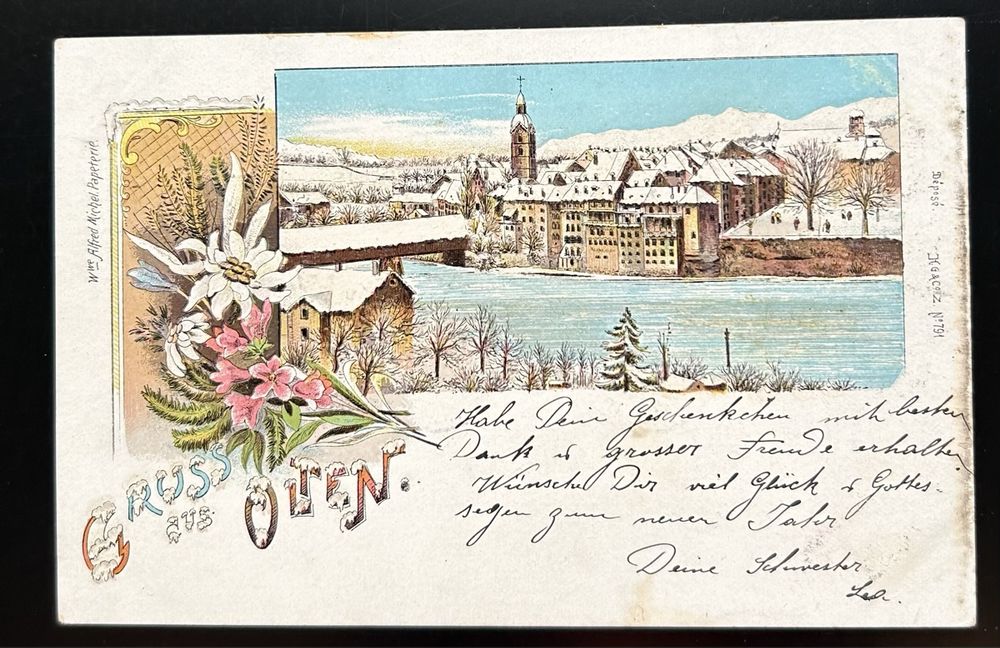 Wwe Alfred Michel Papeterie.
GRUSS
AUS OLTEN.
Déposé.
Nº 791
Habe Dein Geschenkchen mit besten
Dank & grosser Freude erhalten.
Wünsche Dir viel Glück & Gottes-
segen zum neuen Jahr
Deine Schwester